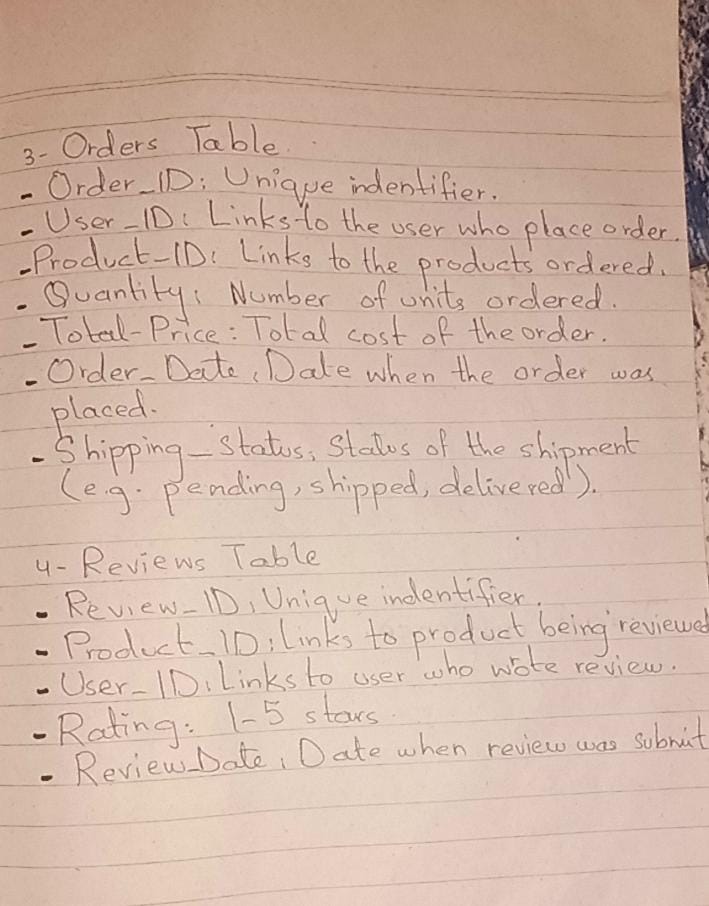 3- Orders Table.
- Order_ID: Unique indentifier.
- User_ID: Links to the user who place order.
- Product_ID: Links to the products ordered.
- Quantity: Number of units ordered.
- Total-Price: Total cost of the order.
- Order_Date: Date when the order was
placed.
- Shipping_Status: Status of the shipment
(e.g. pending, shipped, delivered).
4- Reviews Table
- Review_ID: Unique indentifier.
- Product_ID: Links to product being reviewed
- User_ID: Links to user who wrote review.
- Rating: 1-5 stars.
- Review_Date: Date when review was submit